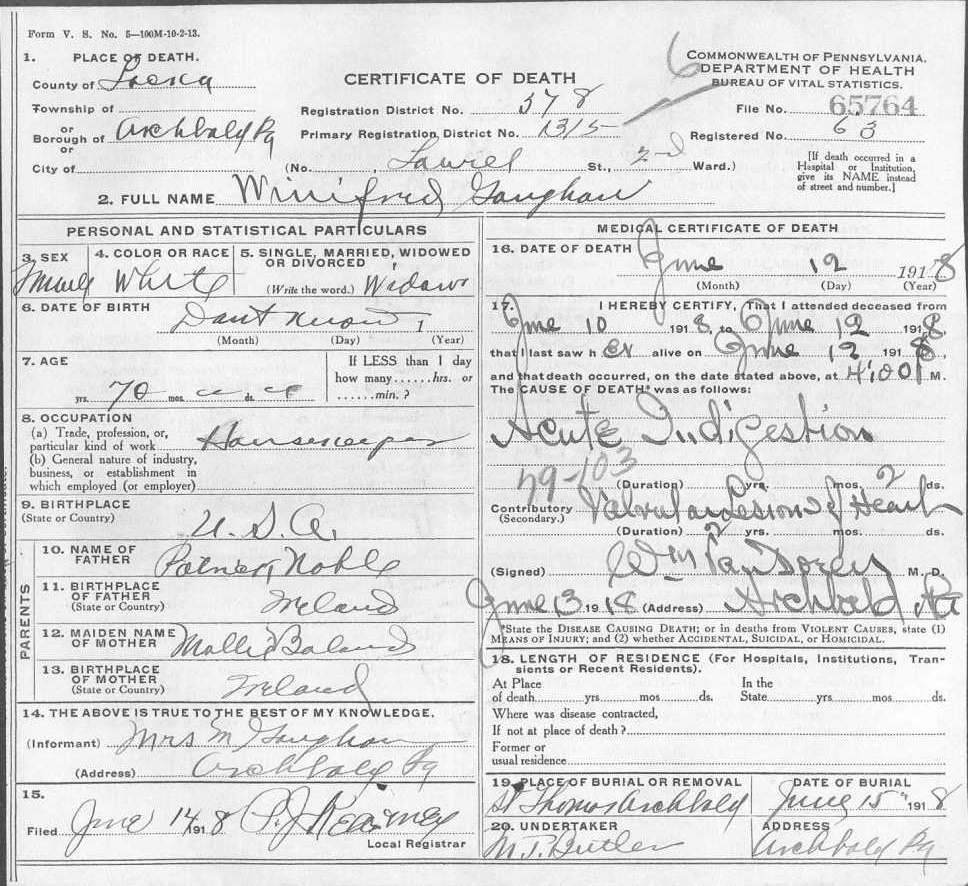 Form V. S. No. 5—100M-10-2-13.
1. PLACE OF DEATH.
County of
Township of
or
Borough of Archbald Pa
or
City of
CERTIFICATE OF DEATH
Registration District No. 378
Primary Registration District No. 1315
(No. , Laurel St., 2nd Ward.)
6
COMMONWEALTH OF PENNSYLVANIA.
DEPARTMENT OF HEALTH
BUREAU OF VITAL STATISTICS.
File No. 65764
Registered No. 63
[If death occurred in a
Hospital or Institution,
give its NAME instead
of street and number.]
2. FULL NAME Winifred Gaughan
PERSONAL AND STATISTICAL PARTICULARS
3. SEX
Female
4. COLOR OR RACE
White
5. SINGLE, MARRIED, WIDOWED
OR DIVORCED
(Write the word.) Widow
6. DATE OF BIRTH
Dont Know 1
(Month) (Day) (Year)
7. AGE
70 yrs. mos. ds.
If LESS than 1 day
how many......hrs. or
......min.?
8. OCCUPATION
(a) Trade, profession, or,
particular kind of work Housekeeper
(b) General nature of industry,
business, or establishment in
which employed (or employer)
9. BIRTHPLACE
(State or Country)
U. S. A.
PARENTS
10. NAME OF
FATHER
Noble
11. BIRTHPLACE
OF FATHER
(State or Country)
Ireland
12. MAIDEN NAME
OF MOTHER
Mollie Boland
13. BIRTHPLACE
OF MOTHER
(State or Country)
Ireland
14. THE ABOVE IS TRUE TO THE BEST OF MY KNOWLEDGE.
(Informant) Mrs M Gaughan
(Address) Archbald Pa
15.
Filed June 14 1918 P. J. Kearney
Local Registrar
MEDICAL CERTIFICATE OF DEATH
16. DATE OF DEATH
June 12 1918
(Month) (Day) (Year)
17. I HEREBY CERTIFY, That I attended deceased from
June 10 1918, to June 12 1918
that I last saw her alive on June 12 1918,
and that death occurred, on the date stated above, at 4:00 M.
The CAUSE OF DEATH* was as follows:
Acute Indigestion
79-103
(Duration) yrs. mos. 2 ds.
Contributory Valvular Lesion of Heart
(Secondary.)
(Duration) 2 yrs. mos. ds.
(Signed) Wm Van M. D.
June 13 1918 (Address) Archbald Pa
*State the DISEASE CAUSING DEATH; or in deaths from VIOLENT CAUSES, state (1)
MEANS OF INJURY; and (2) whether ACCIDENTAL, SUICIDAL, or HOMICIDAL.
18. LENGTH OF RESIDENCE (For Hospitals, Institutions, Tran-
sients or Recent Residents).
At Place In the
of death yrs. mos. ds. State yrs. mos. ds.
Where was disease contracted,
If not at place of death?
Former or
usual residence
19. PLACE OF BURIAL OR REMOVAL
St Thomas Archbald
DATE OF BURIAL
June 15" 1918
20. UNDERTAKER
M. J. Butler
ADDRESS
Archbald Pa